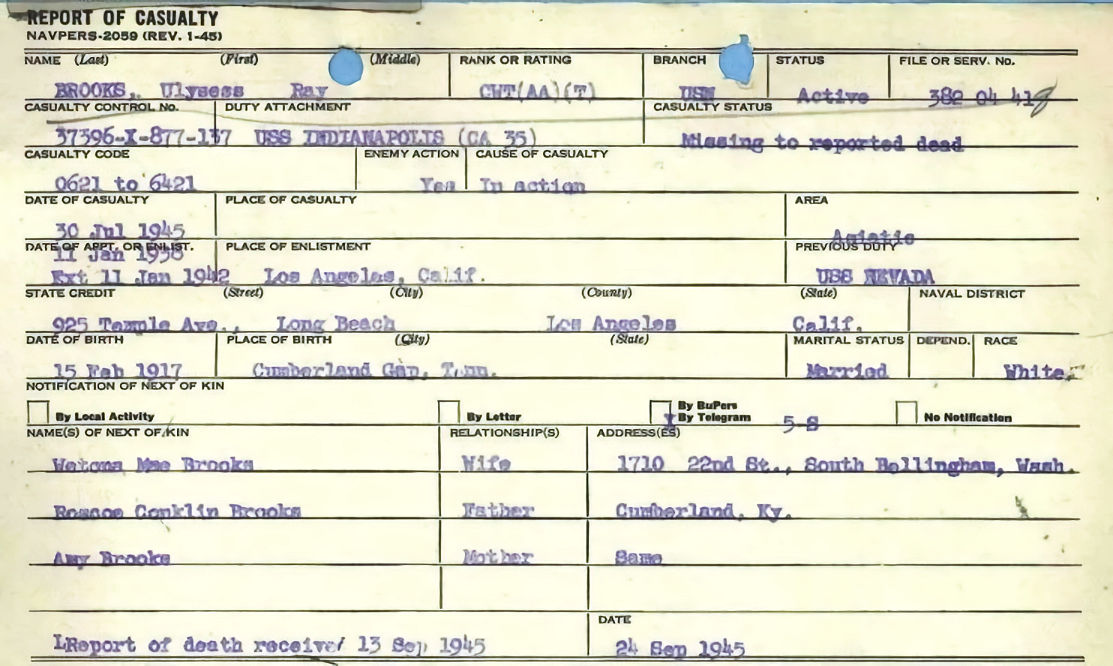 REPORT OF CASUALTY
NAVPERS-2059 (REV. 1-45)
NAME (Last) (First) (Middle) RANK OR RATING BRANCH STATUS FILE OR SERV. No.
BROOKS, Ulysess Ray CWT(AA)(T) USN Active 382 04 41
CASUALTY CONTROL No. DUTY ATTACHMENT CASUALTY STATUS
37396-X-877-137 USS INDIANAPOLIS (CA 35) Missing to reported dead
CASUALTY CODE ENEMY ACTION CAUSE OF CASUALTY
0621 to 6421 Yes In action
DATE OF CASUALTY PLACE OF CASUALTY AREA
30 Jul 1945 Asiatic
DATE OF APPT. OR ENLIST. PLACE OF ENLISTMENT PREVIOUS DUTY
11 Jan 1938
Ext 11 Jan 1942 Los Angeles, Calif. USS NEVADA
STATE CREDIT (Street) (City) (County) (State) NAVAL DISTRICT
925 Temple Ave., Long Beach Los Angeles Calif.
DATE OF BIRTH PLACE OF BIRTH (City) (State) MARITAL STATUS DEPEND. RACE
15 Feb 1917 Cumberland Gap, Tenn. Married White
NOTIFICATION OF NEXT OF KIN
By Local Activity By Letter By BuPers No Notification
X By Telegram 5-8
NAME(S) OF NEXT OF KIN RELATIONSHIP(S) ADDRESS(ES)
Wetona Mae Brooks Wife 1710 22nd St., South Bellingham, Wash.
Roscoe Conklin Brooks Father Cumberland, Ky.
Amy Brooks Mother Same
DATE
LReport of death receive/ 13 Sep 1945 24 Sep 1945